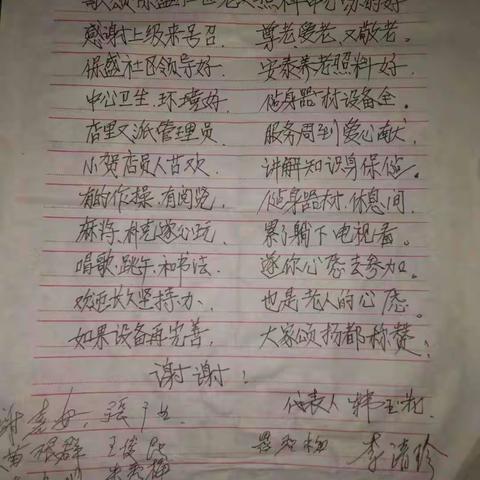 感谢上级来号召. 尊老爱老又敬老.
保盛社区领导好. 安泰养老照料好.
中心卫生.环境好. 健身器材设备全.
店里又派管理员. 服务周到爱心献.
小贺店员人喜欢. 讲解知识身保健.
有的作操.有阅览. 健身器材.休息间.
麻将.朴克遂心玩. 累了躺下电视看.
唱歌.跳午.和书法. 遂你心愿去参加.
欢迎长久坚持办. 也是老人的心愿.
如果设备再完善. 大家颂扬都称赞.
谢谢!
代表人
李清珍